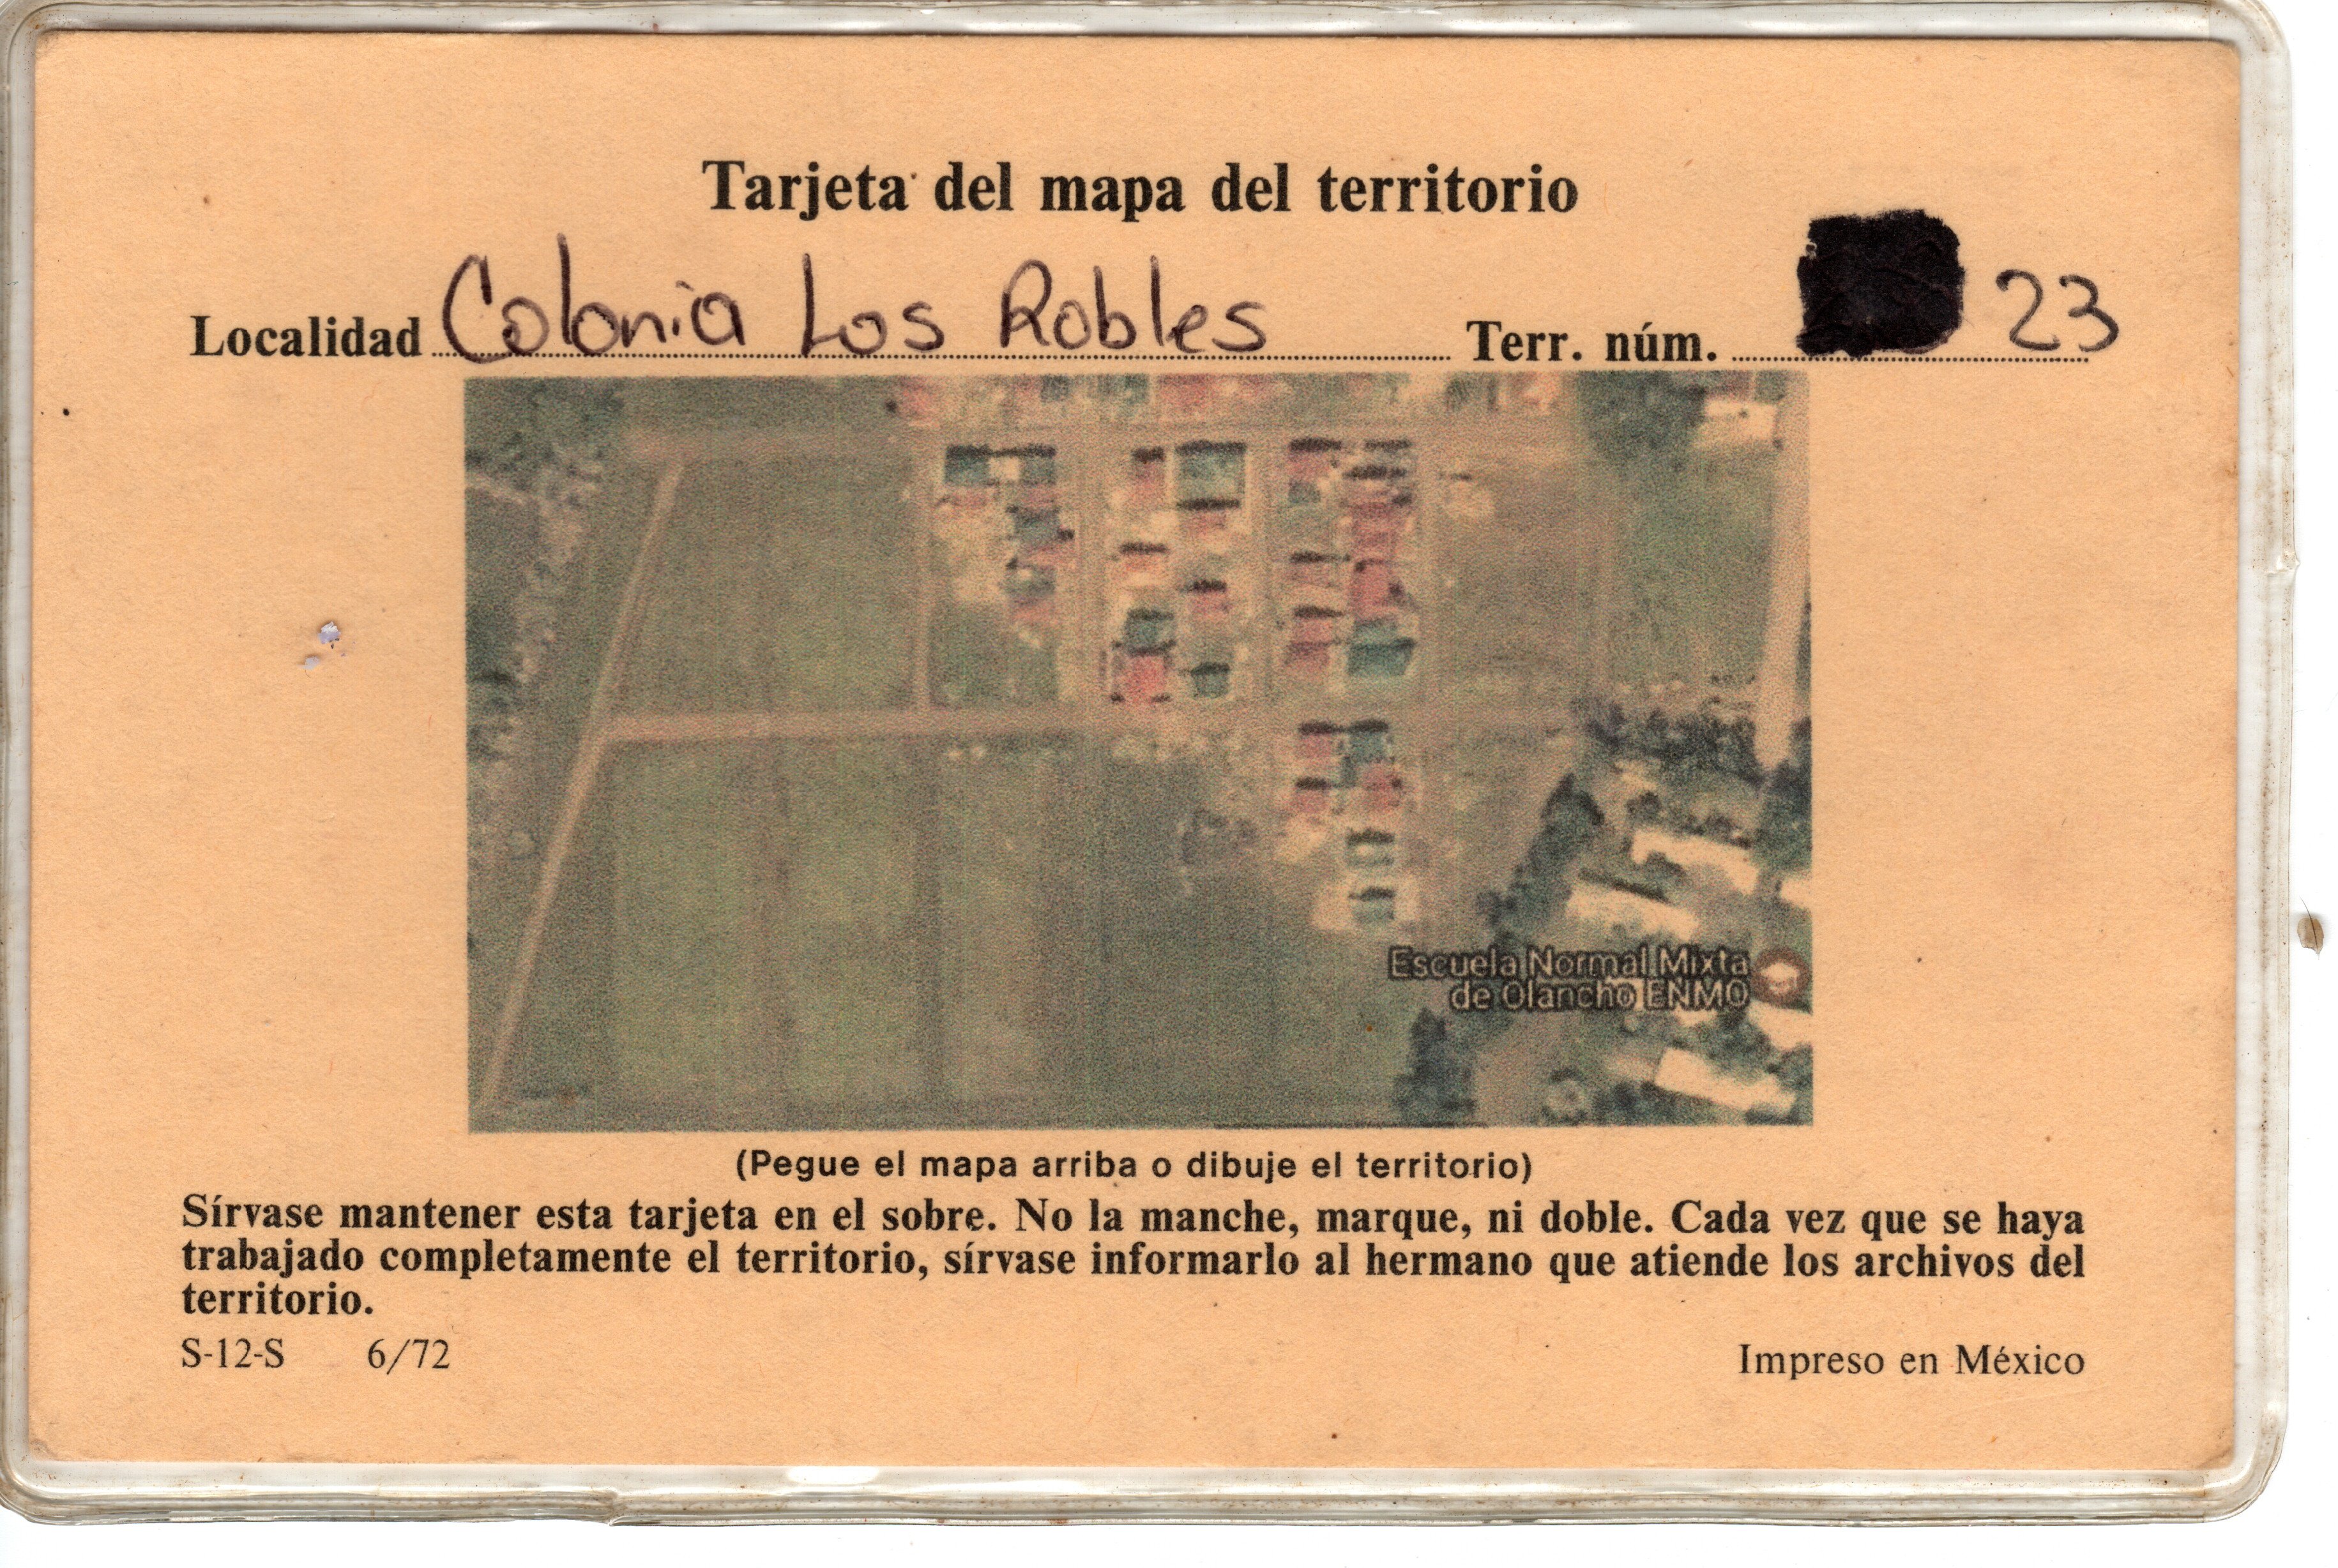 Tarjeta del mapa del territorio
Localidad Colonia Los Robles Terr. núm. 23
Escuela Normal Mixta
de Olancho ENMO
(Pegue el mapa arriba o dibuje el territorio)
Sírvase mantener esta tarjeta en el sobre. No la manche, marque, ni doble. Cada vez que se haya
trabajado completamente el territorio, sírvase informarlo al hermano que atiende los archivos del
territorio.
S-12-S 6/72 Impreso en México